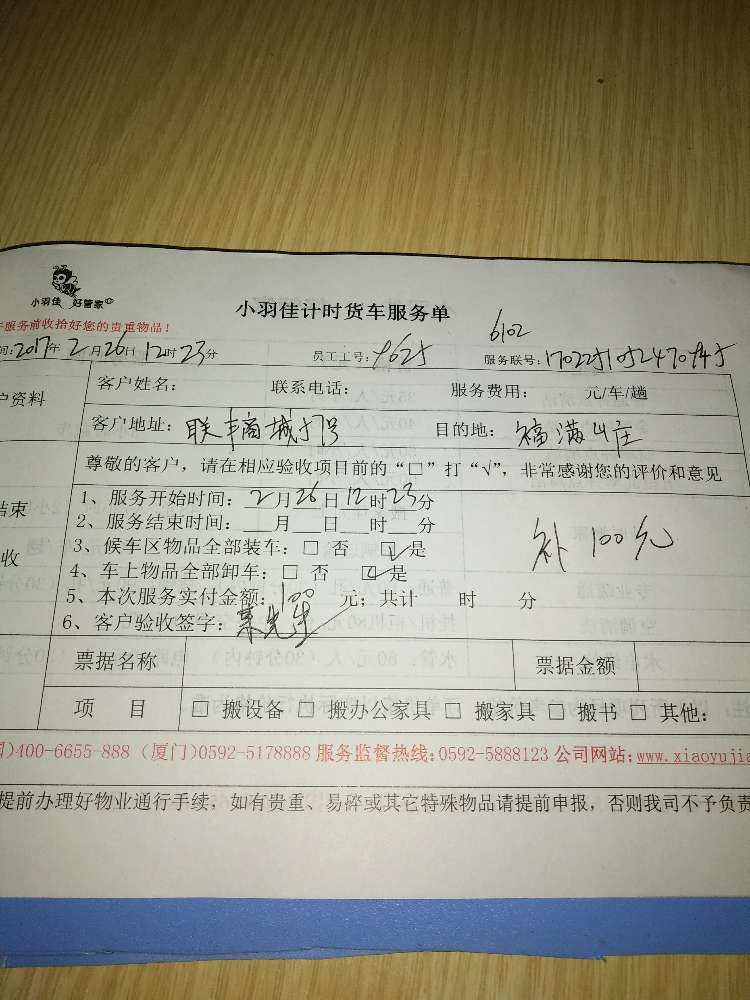 小羽佳 好管家
小羽佳计时货车服务单
服务前收拾好您的贵重物品！
6102
间：2017年 2月26日 12时23分 员工工号：9625 服务联号：
户资料 客户姓名： 联系电话： 服务费用： 元/车/趟
客户地址：联丰商城 目的地：福满山庄
尊敬的客户，请在相应验收项目前的“□”打“√”，非常感谢您的评价和意见
结束
收
1、服务开始时间：2月26日12时23分
2、服务结束时间：___月___日___时___分
3、候车区物品全部装车：□ 否 ☑是
补100元
4、车上物品全部卸车：□ 否 ☑是
5、本次服务实付金额：100 元；共计 时 分
6、客户验收签字：先生
票据名称 票据金额
项 目 □ 搬设备 □ 搬办公家具 □ 搬家具 □ 搬书 □ 其他：
)400-6655-888（厦门)0592-5178888 服务监督热线：0592-5888123 公司网站：www.xiaoyujia
提前办理好物业通行手续，如有贵重、易碎或其它特殊物品请提前申报，否则我司不予负责